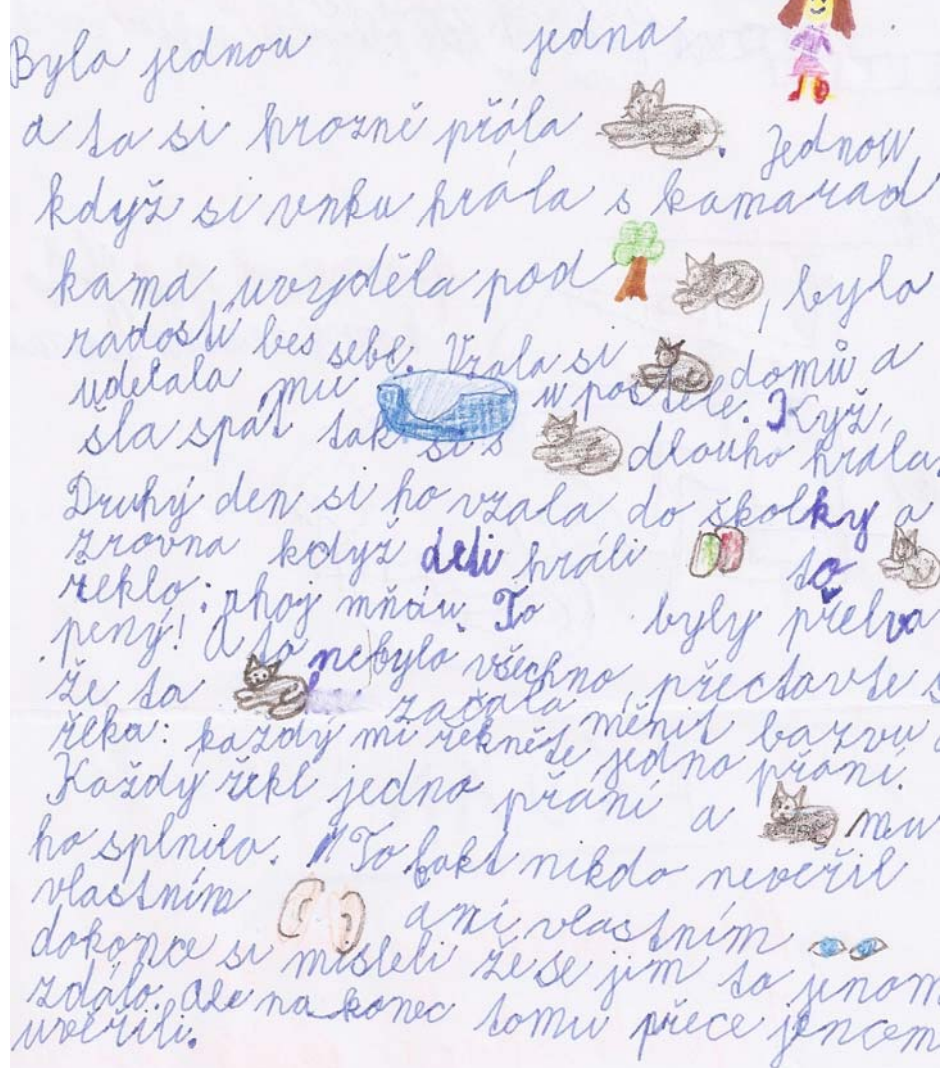 Byla jednou jedna
a ta si hrozně přála . Jednou,
když si venku hrála s kamarád
kama, uvyděla pod , byla
radostí bes sebe. Vzala si domů a
udělala mu u postele. Kyž,
šla spát tak si s dlouho hrála.
Druhý den si ho vzala do školky a
zrovna když deti hráli to
řeklo: ahoj mňáu. To byly překva
pený! A to nebylo všechno, přectavte s
že ta začala měnit barvu a
řeka: každý mi řekněte jedno přání.
Každý řekl jedno přání a mu
ho splnila. To fakt nikdo nevěřil
vlastním ani vlastním
dokonce si misleli že se jim to jenom
zdálo. ale na konec tomu přece jencem
uvěřili.